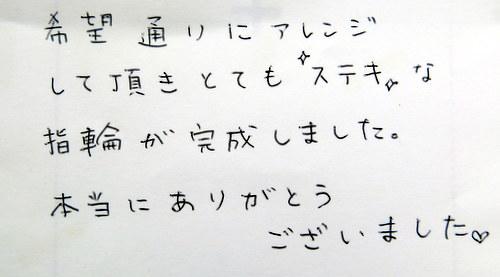 希望通りにアレンジ
して頂きとても✧ステキ✧な
指輪が完成しました。
本当にありがとう
ございました♡